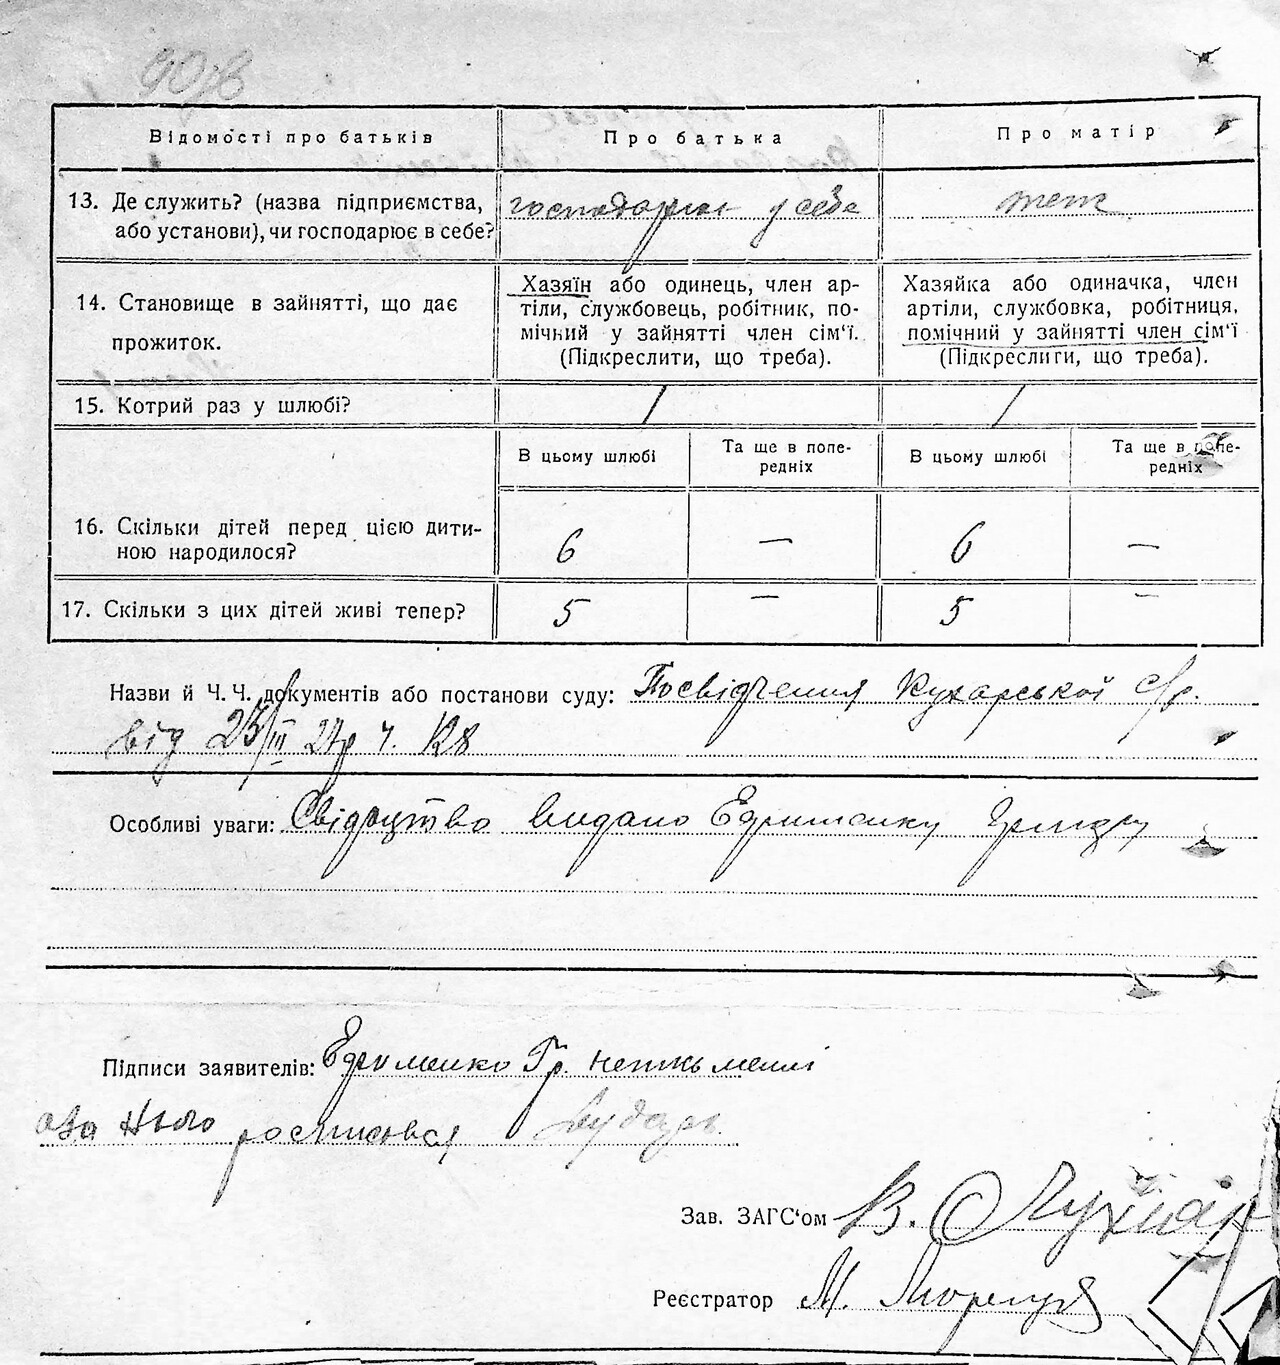 Відомості про батьків Про батька Про матір
13. Де служить? (назва підприємства, або установи), чи господарює в себе? господарює у себе теж
14. Становище в зайнятті, що дає прожиток.
Хазяїн або одинець, член ар-
тіли, службовець, робітник, по-
мічний у зайнятті член сім'ї.
(Підкреслити, що треба).
Хазяйка або одиначка, член
артіли, службовка, робітниця,
помічний у зайнятті член сім'ї
(Підкреслити, що треба).
15. Котрий раз у шлюбі? 1 1
В цьому шлюбі Та ще в попе-
редніх В цьому шлюбі Та ще в попе-
редніх
16. Скільки дітей перед цією дити-
ною народилося? 6 — 6 —
17. Скільки з цих дітей живі тепер? 5 — 5 —
Назви й Ч. Ч. документів або постанови суду: Посвідчення Кухарської с/р.
від 25/III 27р ч. 128
Особливі уваги: Свідоцтво видано Єфименку Грицку
Підписи заявителів: Єфименко Гр. неписьменні
а за нього росписався
Зав. ЗАГС'ом В.
Реєстратор М.